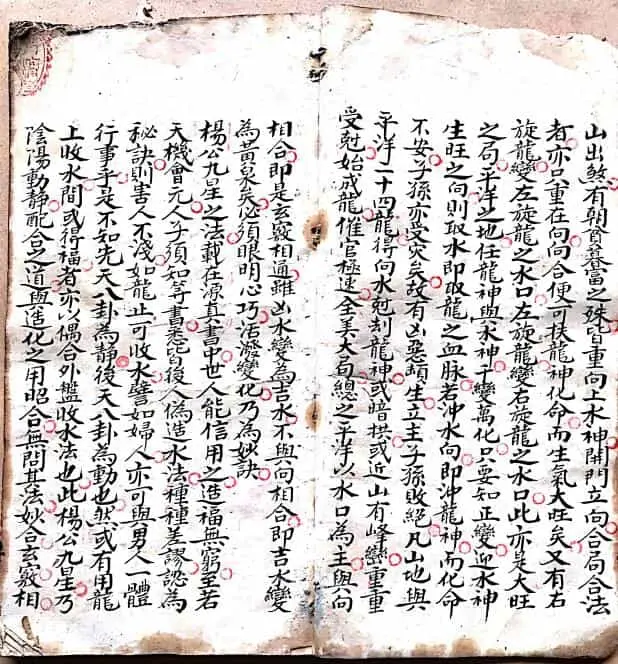 山出煞有朝貧暮富之殊皆重向上水神開門立向合局合法
者亦只重在向向合便可扶龍神化命而生氣大旺矣又有右
旋龍變左旋龍之水口左旋龍變右旋龍之水口此亦是大旺
之局平洋之地任龍神與水神千變萬化只要知正變迎水神
生旺之向則取水即取龍之血脉若沖水向即沖龍神而化命
不安子孫亦受災矣故有凶惡頻生立主子孫敗絕凡山地與
平洋二十四龍得向水剋刼龍神或暗拱或近山有峰巒重重
受剋始成龍催官極速全美大局總之平洋以水口為主與向
相合即是玄竅相通雖凶水變為吉水不與向相合即吉水變
為黃泉矣必須眼明心巧活潑變化乃為妙訣
楊公九星之法載在源真書中世人能信用之造福無窮至若
天機會元人子須知等書悉皆後人偽造水法種種差謬認為
秘訣則害人不淺如龍止可收水譬如婦人亦可與男人一體
行事乎是不知先天八卦為靜後天八卦為動也然或有用龍
上收水間或得福者亦以偶合外盤收水法也此楊公九星乃
陰陽動靜配合之道與造化之用昭合無間其法妙合玄竅相